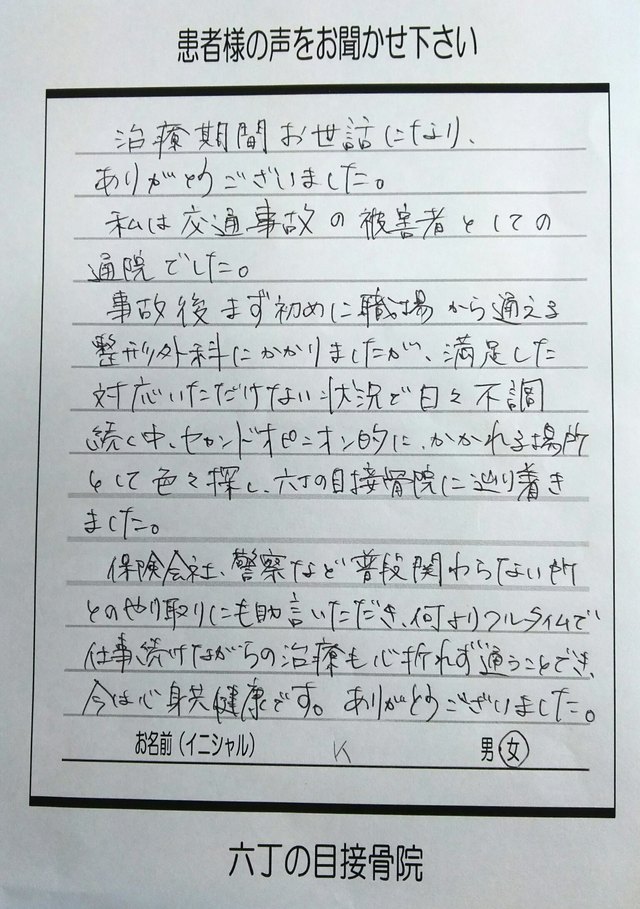 患者様の声をお聞かせ下さい
治療期間お世話になり、
ありがとうございました。
私は交通事故の被害者としての
通院でした。
事故後まず初めに職場から通える
整形外科にかかりましたが、満足した
対応いただけない状況で日々不調
続く中、セカンドオピニオン的に、かかれる場所
として色々探し、六丁の目接骨院に辿り着き
ました。
保険会社、警察など普段関わらない所
とのやり取りにも助言いただき、何よりフルタイムで
仕事続けながらの治療も心折れず通うことでき、
今は心身共健康です。ありがとうございました。
お名前（イニシャル） K 男・女
六丁の目接骨院